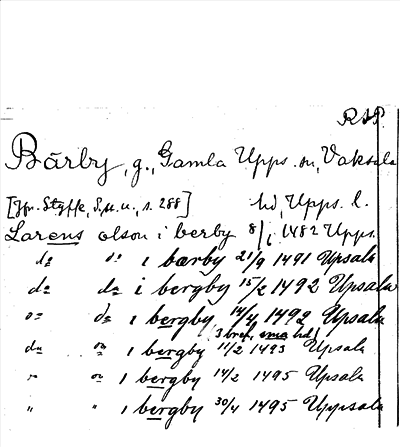 RAP.
Bärby, g., Gamla Upps. sn, Vaksala
[Jfr. Styffe, S.u.u., s. 288] hd, Upps. l.
Larens olson i berby 8/1 1482 Upps.
do do i bærby 21/9 1491 Upsala
do do i bergby 15/2 1492 Upsala
do do i bergby 14/4 1492 Upsala
3 bref, sma hd!
do do i bergby 11/2 1493 Upsala
" do i bergby 14/2 1495 Upsala
" " i bergby 30/4 1495 Uppsala